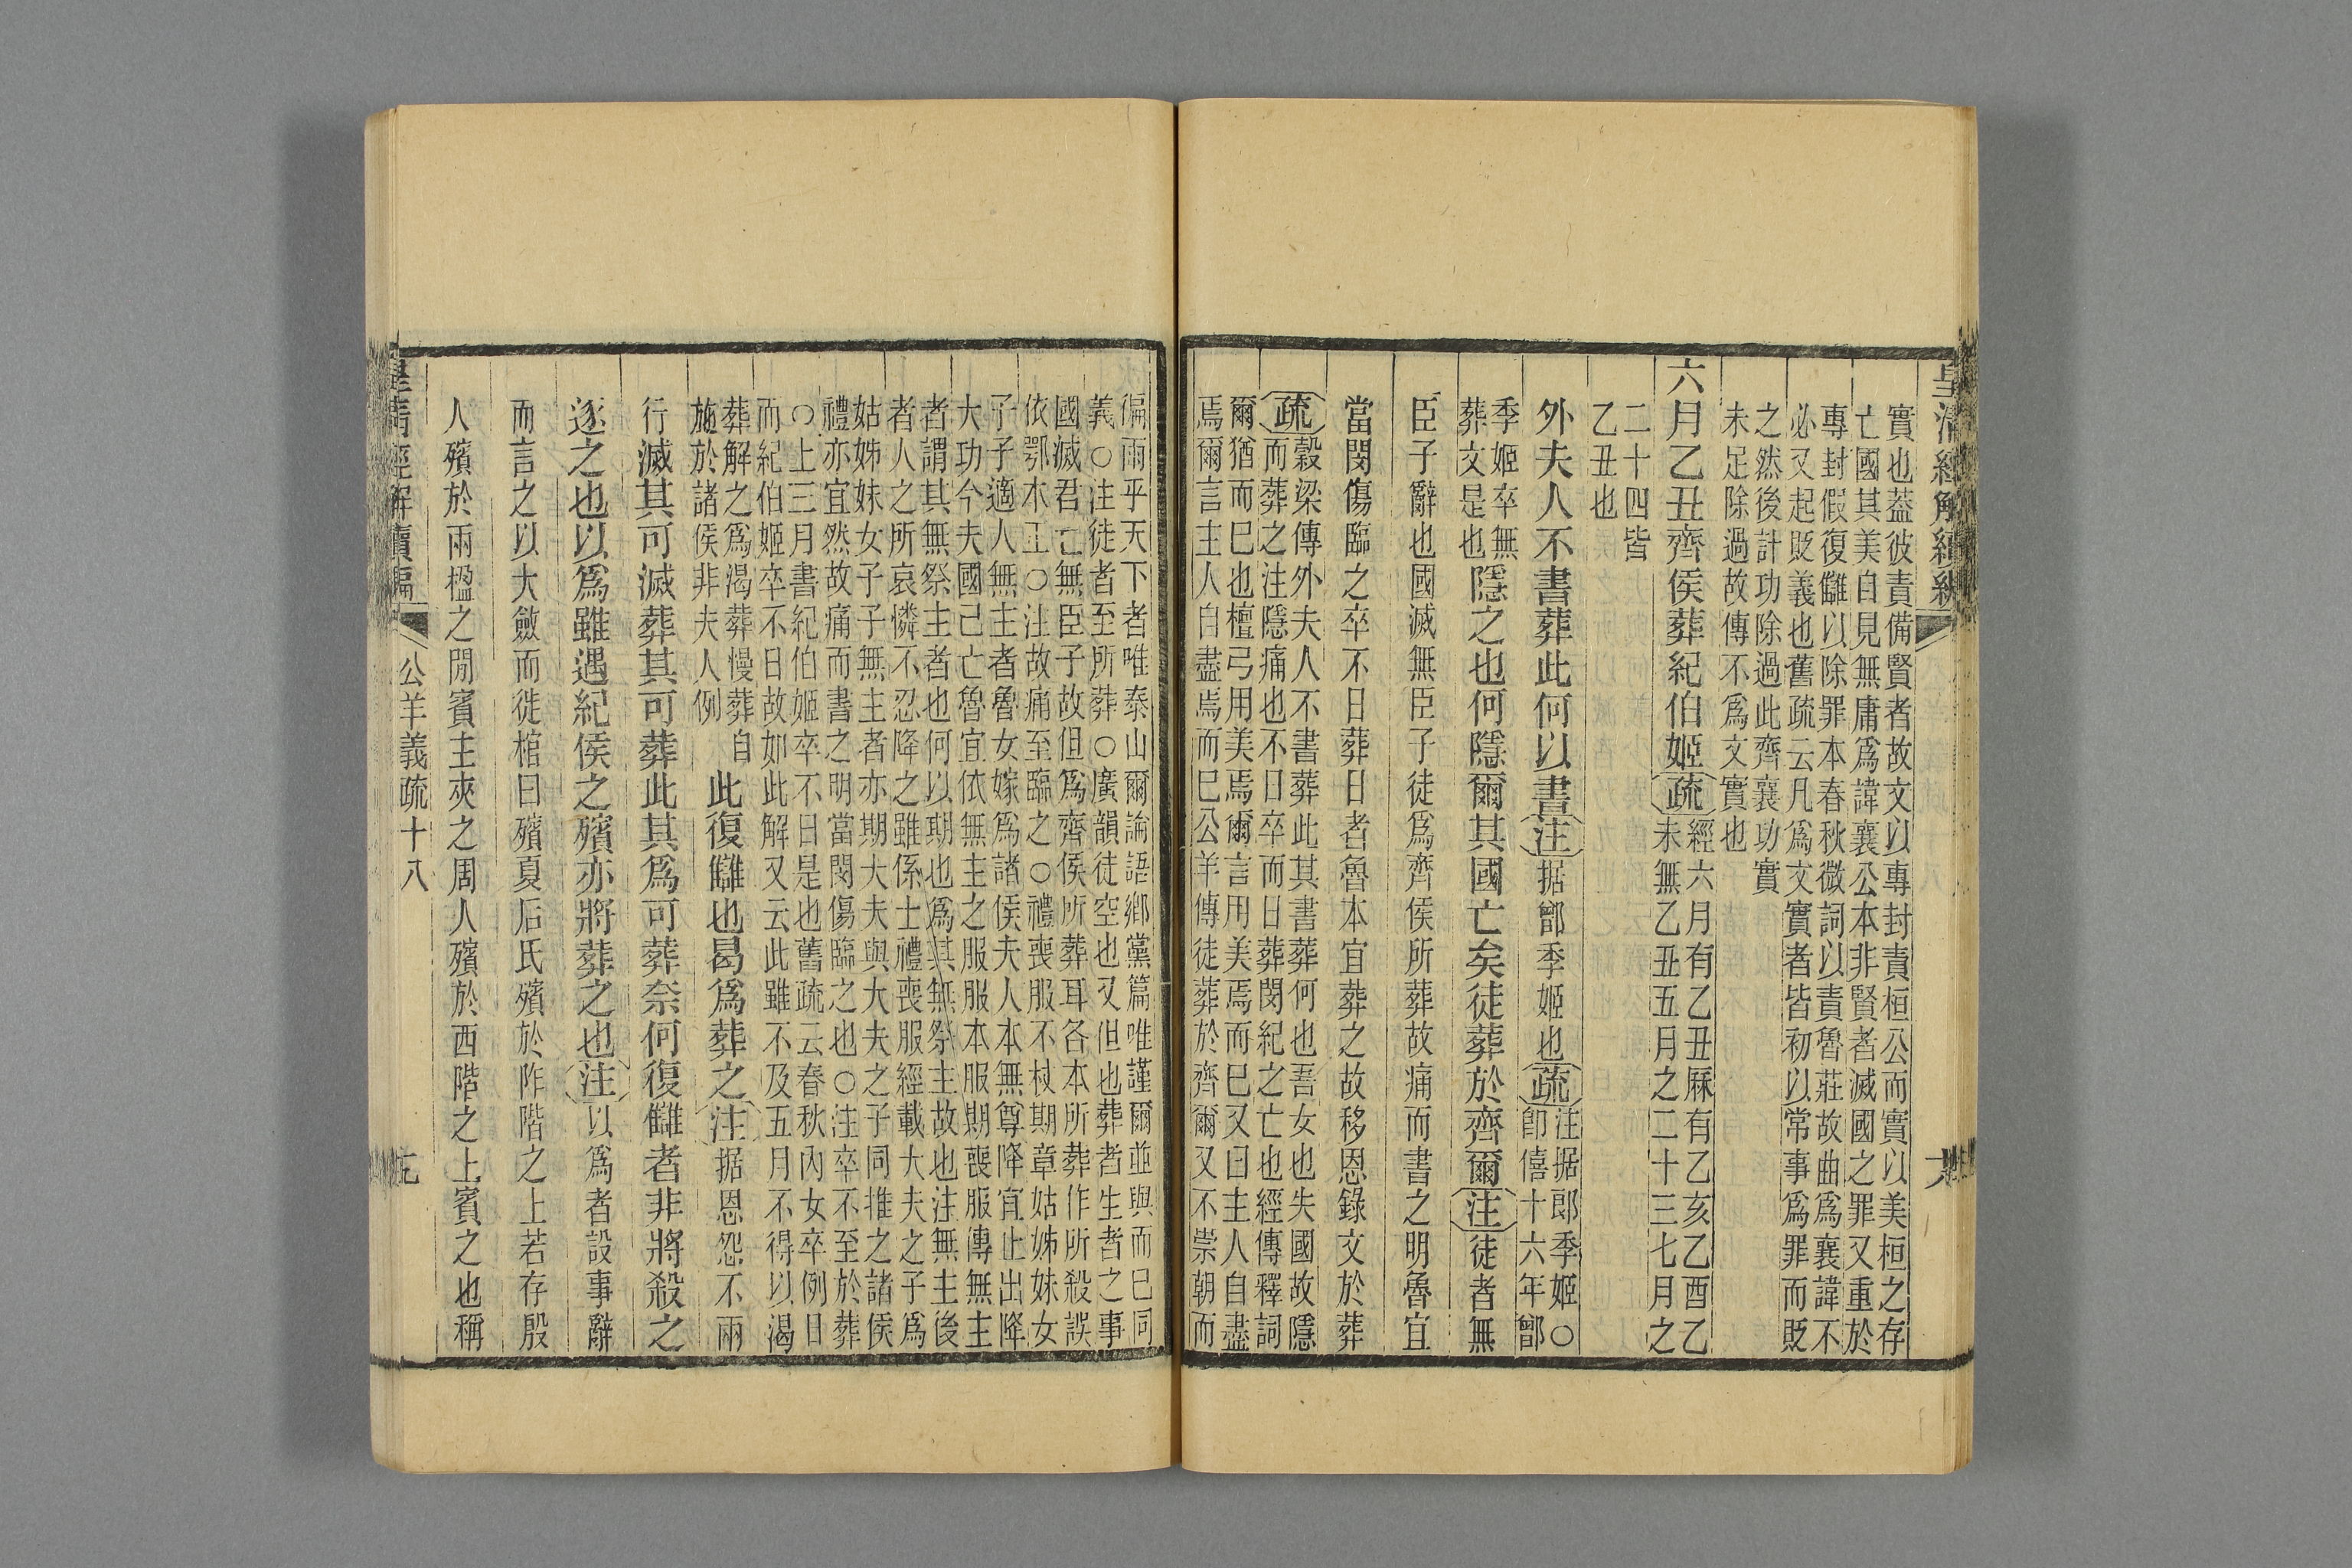 皇清經解續編
實也蓋彼責備賢者故文以專封責桓公而實以美桓之存
亡國其美自見無庸爲諱襄公本非賢者滅國之罪又重於
專封假復讎以除罪本春秋微詞以責魯莊故曲爲襄諱不
必又起貶義也舊疏云凡爲文實者皆初以常事爲罪而貶
之然後計功除過此齊襄功實
未足除過故傳不爲文實也
六月乙丑齊侯葬紀伯姬疏
經六月有乙丑厤有乙亥乙酉乙
未無乙丑五月之二十三七月之
二十四皆
乙丑也
外夫人不書葬此何以書注据鄫季姬也疏
注据鄫季姬○
卽僖十六年鄫
季姬卒無
葬文是也
隱之也何隱爾其國亡矣徒葬於齊爾注徒者無
臣子辭也國滅無臣子徒爲齊侯所葬故痛而書之明魯宜
當閔傷臨之卒不日葬日者魯本宜葬之故移恩錄文於葬
疏
穀梁傳外夫人不書葬此其書葬何也吾女也失國故隱
而葬之注隱痛也不日卒而日葬閔紀之亡也經傳釋詞
爾猶而巳也檀弓用美焉爾言用美焉而巳又曰主人自盡
焉爾言主人自盡焉而巳公羊傳徒葬於齊爾又不崇朝而
徧雨乎天下者唯泰山爾論語鄉黨篇唯謹爾並與而巳同
義○注徒者至所葬○廣韻徒空也又但也葬者生者之事
國滅君亡無臣子故但爲齊侯所葬耳各本所葬作所殺誤
依鄂本正○注故痛至臨之○禮喪服不杖期章姑姊妹女
子子適人無主者魯女嫁爲諸侯夫人本無尊降宜止出降
大功今夫國已亡魯宜依無主之服服本服期喪服傳無主
者謂其無祭主者也何以期也爲其無祭主故也注無主後
者人之所哀憐不忍降之雖係士禮喪服經載大夫之子爲
姑姊妹女子子無主者亦期大夫與大夫之子同推之諸侯
禮亦宜然故痛而書之明當閔傷臨之也○注卒不至於葬
○上三月書紀伯姬卒不日是也舊疏云春秋內女卒例日
而紀伯姬卒不日故如此解又云此雖不及五月不得以渴
葬解之爲渴葬慢葬自
施於諸侯非夫人例
此復讎也曷爲葬之注据恩怨不兩
行滅其可滅葬其可葬此其爲可葬奈何復讎者非將殺之
逐之也以爲雖遇紀侯之殯亦將葬之也注以爲者設事辭
而言之以大斂而徙棺曰殯夏后氏殯於阼階之上若存殷
人殯於兩楹之閒賓主夾之周人殯於西階之上賓之也稱
皇清經解續編 公羊義疏十八